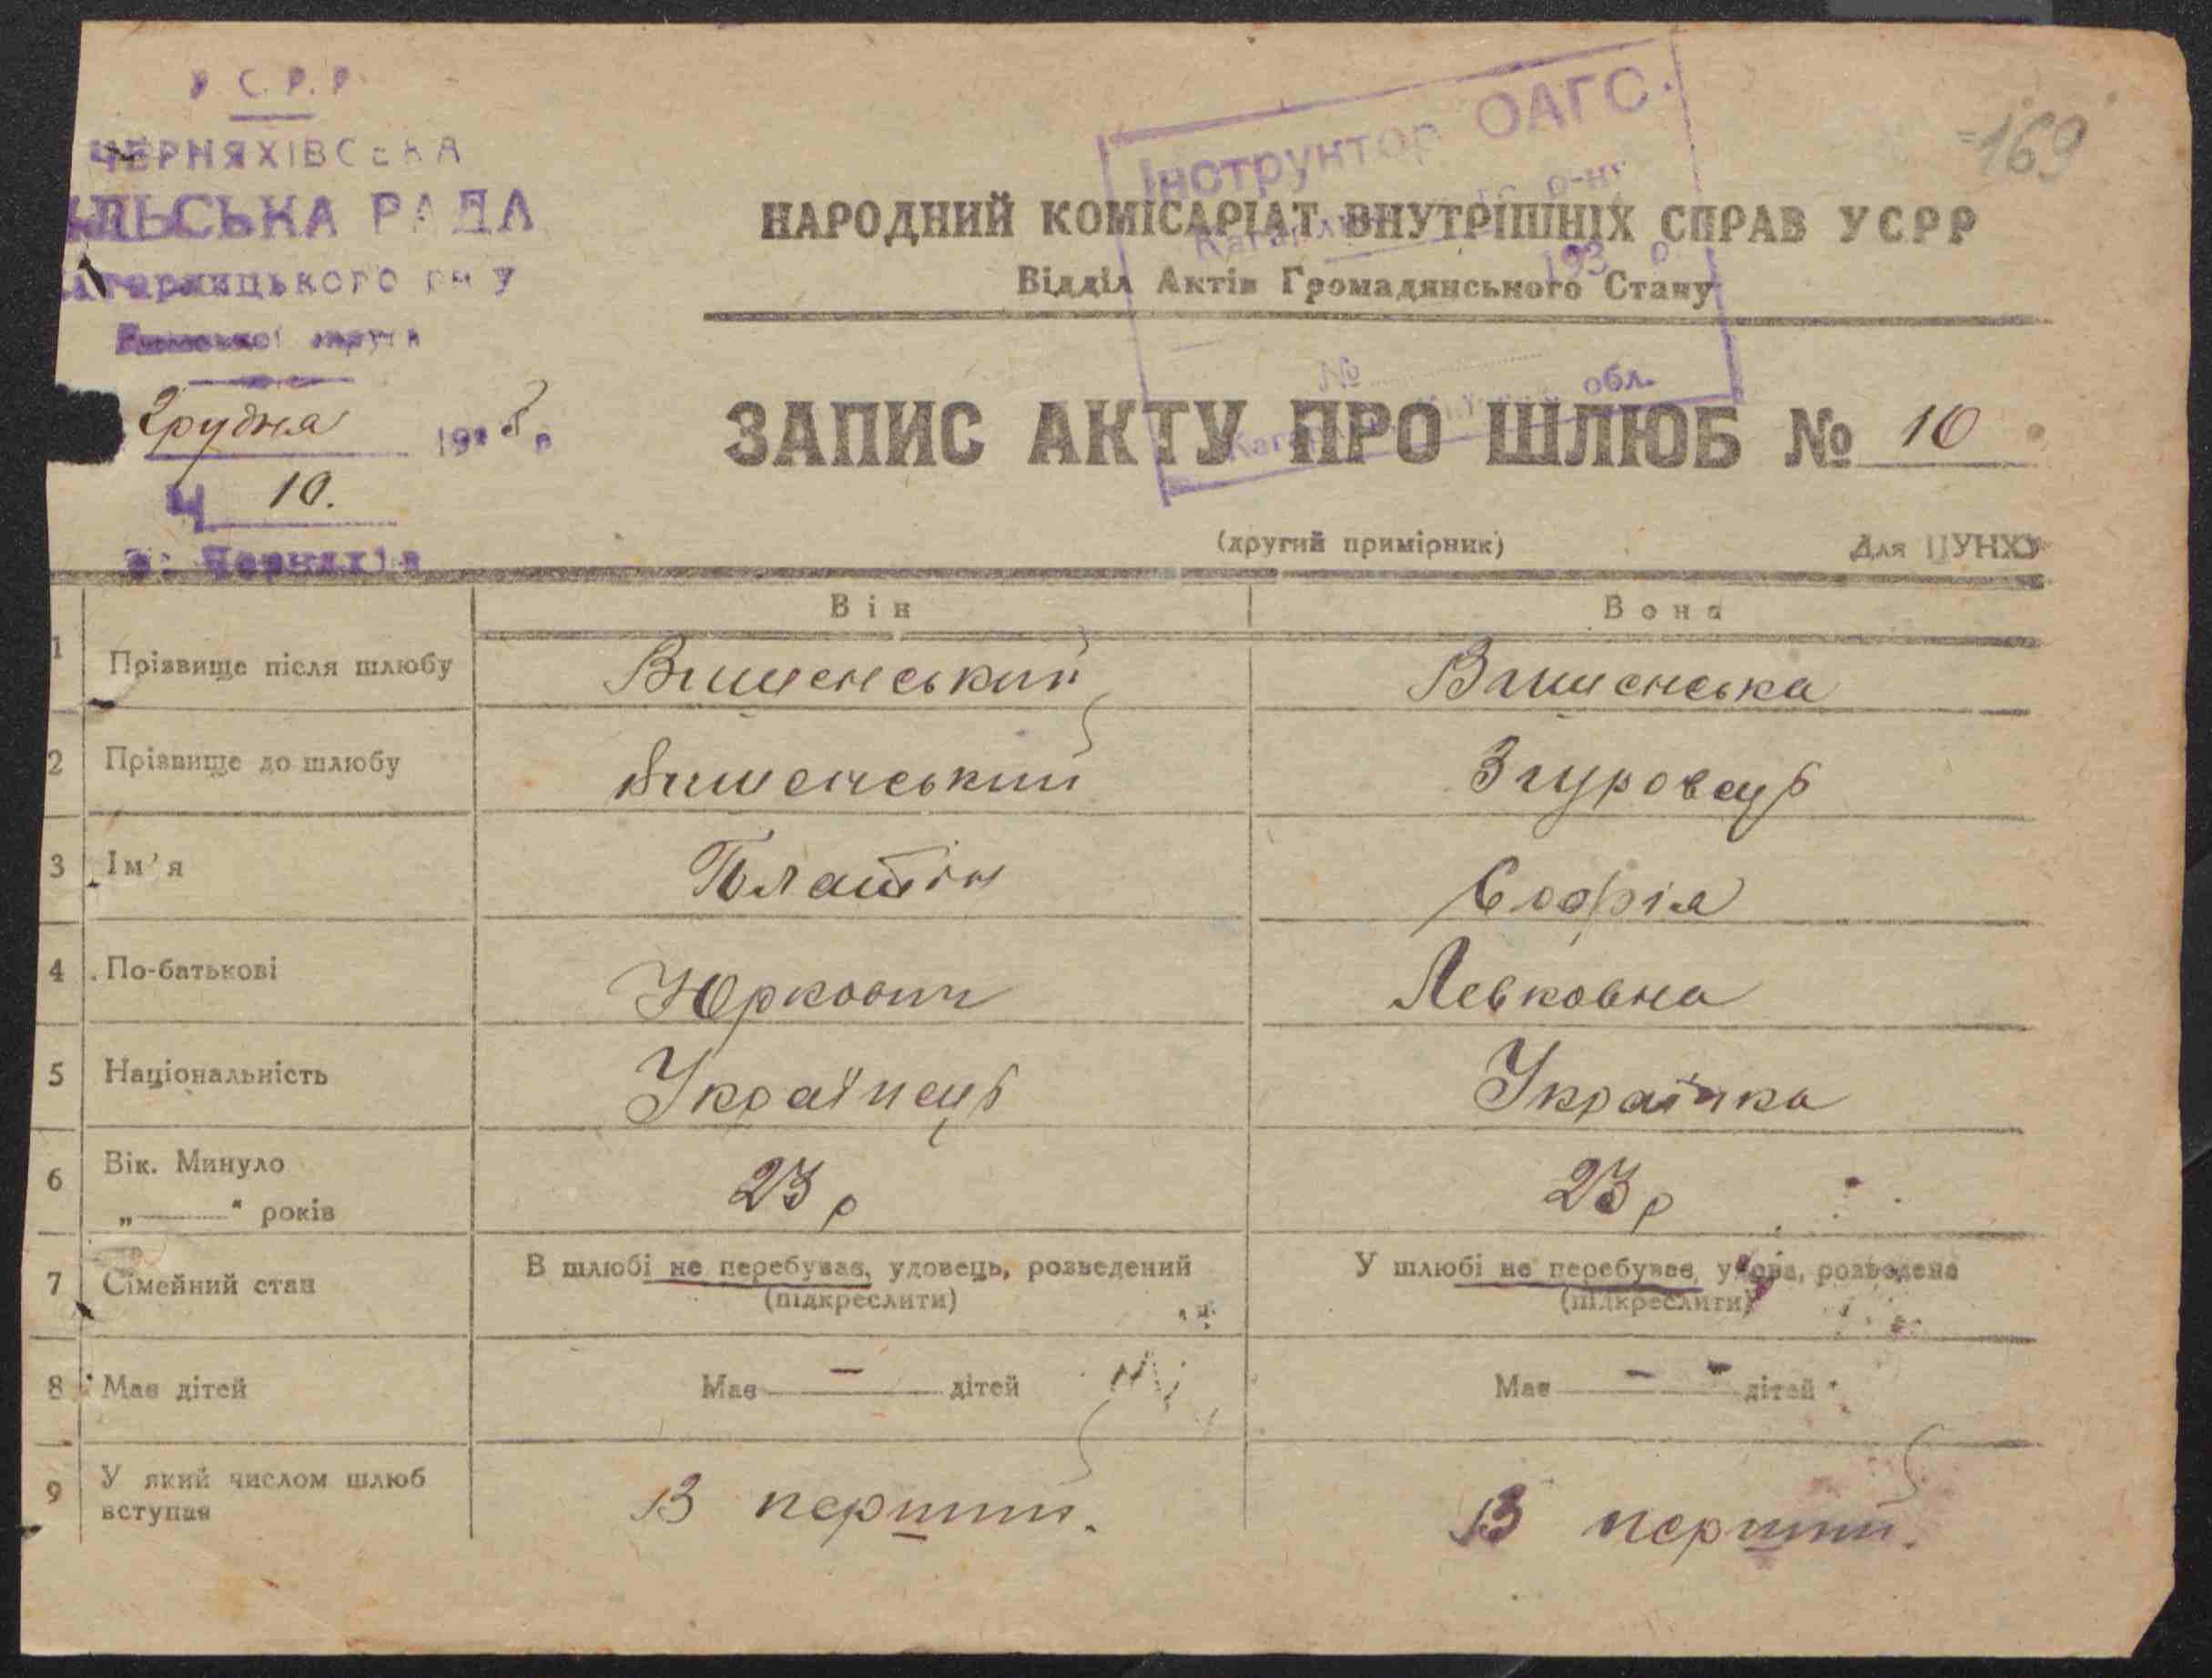 У С.Р.Р.
ЧЕРНЯХІВСЬКА
ІЛЬСЬКА РАДА
агарлицького р-ну
грудня 193
Ч 10.
с. Черняхів
Інструктор ОАГС.
р-ну
193 р
№
обл.
=169
НАРОДНИЙ КОМІСАРІАТ ВНУТРІШНІХ СПРАВ УСРР
Відділ Актів Громадянського Стану
ЗАПИС АКТУ ПРО ШЛЮБ № 10
(другий примірник) Для ЦУНХУ
Він Вона
1 Прізвище після шлюбу Вишенський Вишенська
2 Прізвище до шлюбу Вишенський Згуровець
3 Ім'я Платін Софія
4 По-батькові Юркович Левковна
5 Національність Українець Українка
6 Вік. Минуло
„——" років 23 р 23 р
7 Сімейний стан В шлюбі не перебуває, удовець, розведений У шлюбі не перебуває, удова, розведена
(підкреслити) (підкреслити)
8 Має дітей Має — дітей Має — — дітей
9 У який числом шлюб
вступає В перший. В перший.